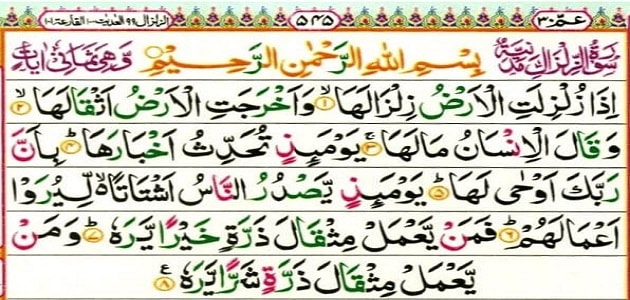 عمّ ٣٠ ٥٤٥ الزلزال ٩٩ العٰدیٰت ١٠٠ القارعة ١٠١
سُوْرَةُ الزِّلْزَالِ مَدَنِيَّةٌ بِسْمِ اللّٰهِ الرَّحْمٰنِ الرَّحِيْمِ وَّهِيَ ثَمَانِيْ اٰيَاتٍ
اِذَا زُلْزِلَتِ الْاَرْضُ زِلْزَالَهَا ۙ۝١ وَاَخْرَجَتِ الْاَرْضُ اَثْقَالَهَا ۙ۝٢
وَقَالَ الْاِنْسَانُ مَا لَهَا ۚ۝٣ يَوْمَىِٕذٍ تُحَدِّثُ اَخْبَارَهَا ۙ۝٤ بِاَنَّ
رَبَّكَ اَوْحٰى لَهَا ؕ۝٥ يَوْمَىِٕذٍ يَّصْدُرُ النَّاسُ اَشْتَاتًا ۙ۬ لِّيُرَوْا
اَعْمَالَهُمْ ؕ۝٦ فَمَنْ يَّعْمَلْ مِثْقَالَ ذَرَّةٍ خَيْرًا يَّرَهٗ ؕ۝٧ وَمَنْ
يَّعْمَلْ مِثْقَالَ ذَرَّةٍ شَرًّا يَّرَهٗ ۝٨ ع